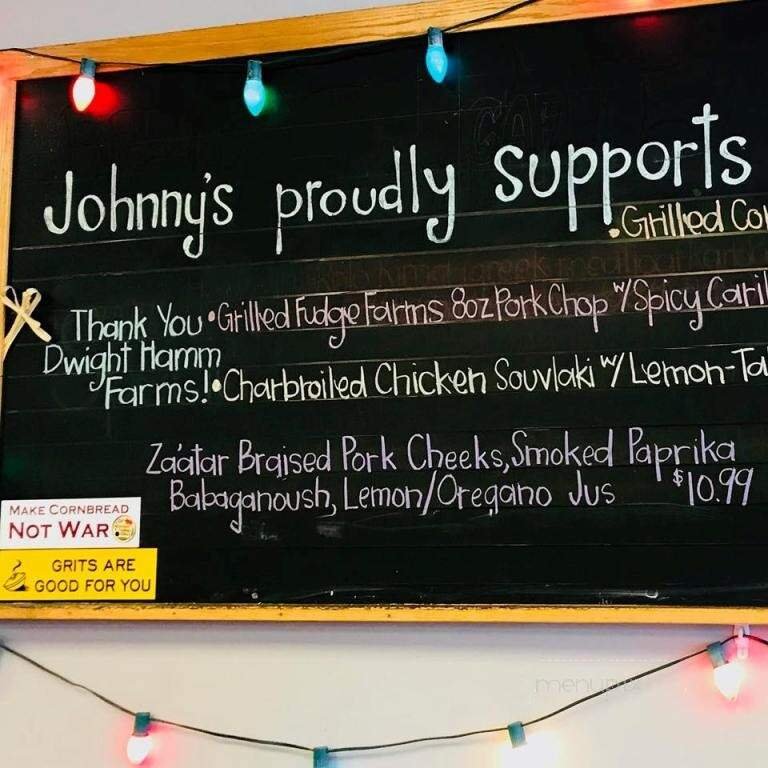 Johnny's proudly supports
•Grilled Co
Thank You •Grilled Fudge Farms 8oz Pork Chop w/ Spicy Carib
Dwight Hamm
Farms! •Charbroiled Chicken Souvlaki w/ Lemon-Ta
Za'atar Braised Pork Cheeks, Smoked Paprika
Babaganoush, Lemon/Oregano Jus $10.99
MAKE CORNBREAD
NOT WAR
GRITS ARE
GOOD FOR YOU